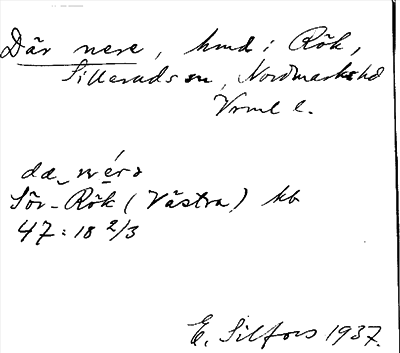 Där nere, hmd i Rök,
Silleruds sn, Nordmarks hd
Vrml l.
da nérə
Sör-Rök (Västra) kb
47:18 2/3
E. Silfors 1937.